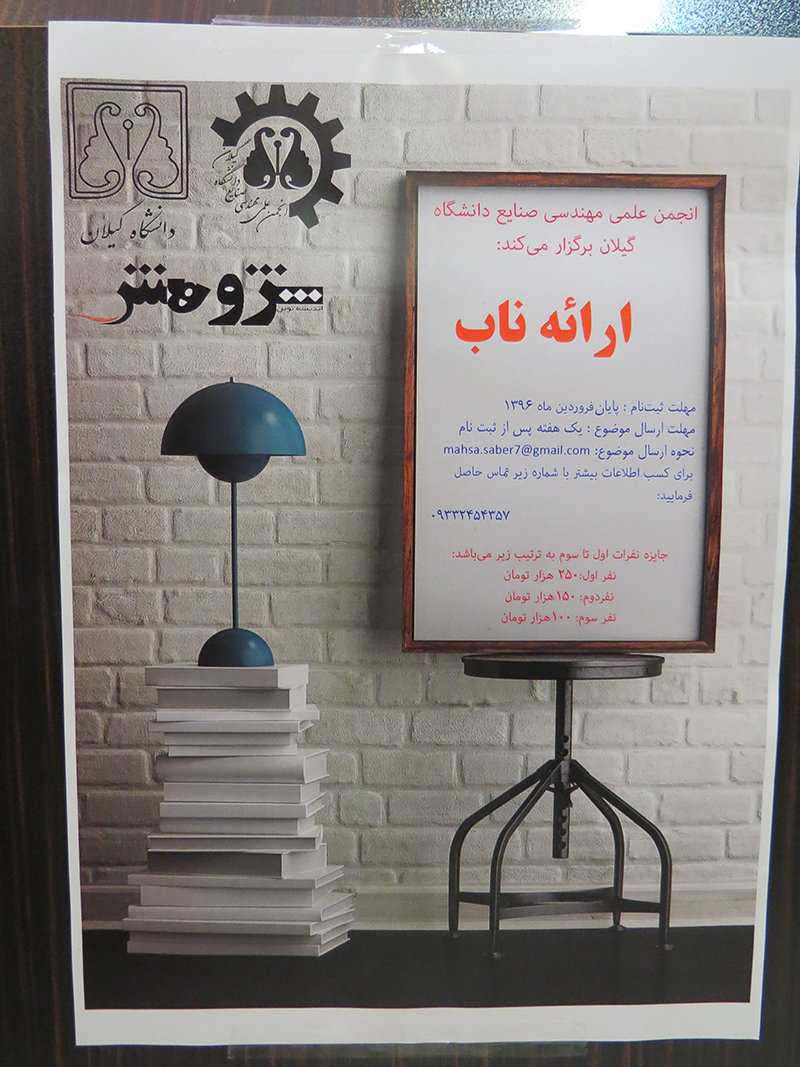 دانشگاه گیلان
انجمن علمی مهندسی صنایع دانشگاه گیلان
پژوهش
اندیشه نوین
انجمن علمی مهندسی صنایع دانشگاه
گیلان برگزار می‌کند:
ارائه ناب
مهلت ثبت‌نام : پایان فروردین ماه ۱۳۹۶
مهلت ارسال موضوع : یک هفته پس از ثبت نام
نحوه ارسال موضوع: mahsa.saber7@gmail.com
برای کسب اطلاعات بیشتر با شماره زیر تماس حاصل
فرمایید:
۰۹۳۳۲۴۵۴۳۵۷
جایزه نفرات اول تا سوم به ترتیب زیر می‌باشد:
نفر اول:۲۵۰ هزار تومان
نفردوم: ۱۵۰هزار تومان
نفر سوم: ۱۰۰هزار تومان